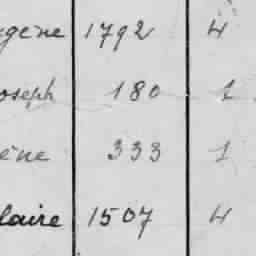 gène 1792 4
oseph 180 1
ène 333 1
laire 1507 4